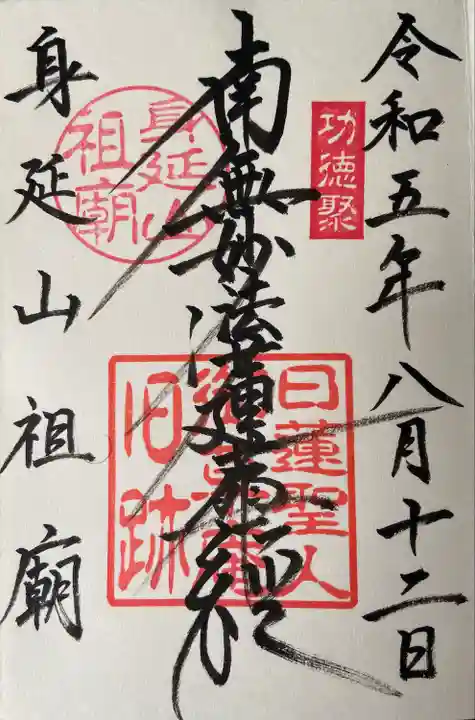 令和五年八月十二日
功徳聚
南無妙法蓮華経
日蓮聖人
御草庵
旧跡
身延山
祖廟
身延山祖廟